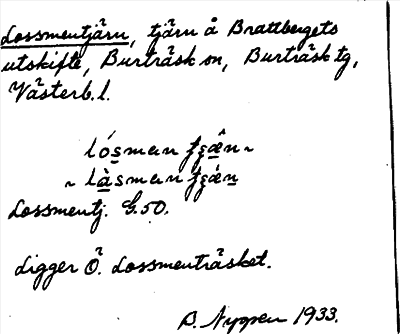 Lossmentjärn, tjärn å Brattbergets
utskifte, Burträsk sn, Burträsk tg,
Västerb. l.
Lossmentj. G.50.
Ligger Ö. Lossmenträsket.
B. Nyppen 1933.